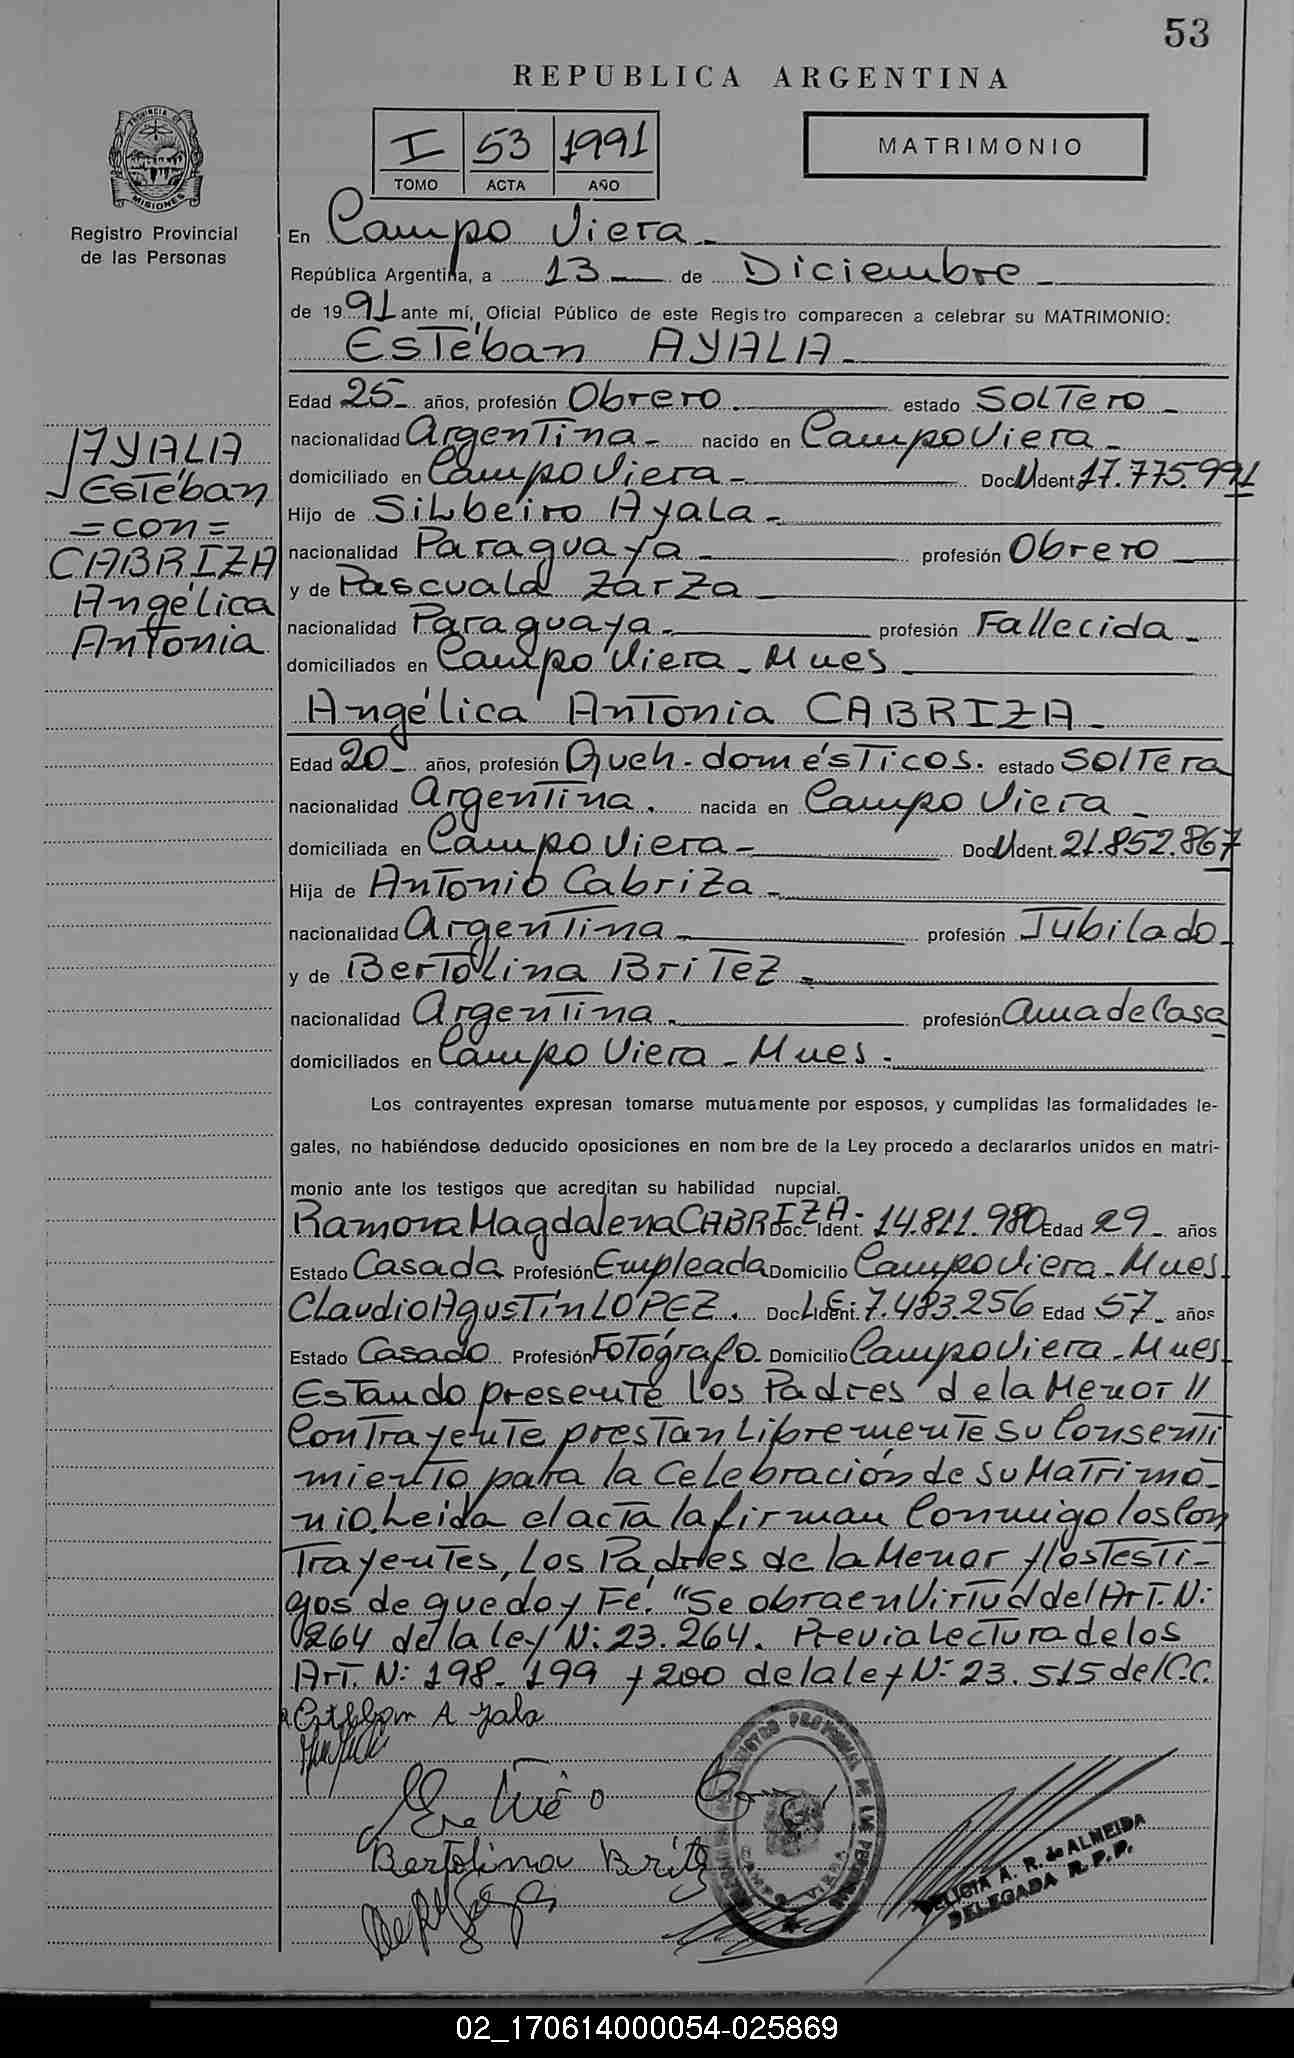 53
REPUBLICA ARGENTINA
I 53 1991
TOMO ACTA AÑO
MATRIMONIO
PROVINCIA DE MISIONES
Registro Provincial
de las Personas
AYALA
Estéban
=con=
CABRIZA
Angélica
Antonia
En Campo Viera
República Argentina, a 13 de Diciembre
de 1991 ante mí, Oficial Público de este Registro comparecen a celebrar su MATRIMONIO:
Estéban AYALA
Edad 25 años, profesión Obrero estado Soltero
nacionalidad Argentina nacido en Campo Viera
domiciliado en Campo Viera Doc. Ident. 17.775.991
Hijo de Silbeiro Ayala
nacionalidad Paraguaya profesión Obrero
y de Pascuala Zarza
nacionalidad Paraguaya profesión Fallecida
domiciliados en Campo Viera - Mnes
Angélica Antonia CABRIZA
Edad 20 años, profesión Queh. domésticos. estado Soltera
nacionalidad Argentina. nacida en Campo Viera
domiciliada en Campo Viera Doc. Ident. 21.852.867
Hija de Antonio Cabriza
nacionalidad Argentina profesión Jubilado
y de Bertolina Britez
nacionalidad Argentina profesión Ama de Casa
domiciliados en Campo Viera - Mnes.
Los contrayentes expresan tomarse mutuamente por esposos, y cumplidas las formalidades le-
gales, no habiéndose deducido oposiciones en nombre de la Ley procedo a declararlos unidos en matri-
monio ante los testigos que acreditan su habilidad nupcial.
Ramona Magdalena CABRIZA- Doc. Ident. 14.811.980 Edad 29 años
Estado Casada Profesión Empleada Domicilio Campo Viera - Mnes.
Claudio Agustín LOPEZ. Doc. L.E. Ident. 7.483.256 Edad 57 años
Estado Casado Profesión Fotógrafo Domicilio Campo Viera - Mnes
Estando presente los Padres de la Menor //
Contrayente prestan Libremente su Consenti
miento, para la Celebración de su Matrimo-
nio. Leida el acta la firman Conmigo los Con
trayentes, Los Padres de la Menor y los testi-
gos de que doy Fé. "Se obra en Virtud del Art. N:
264 de la ley N: 23.264. Previa Lectura de los
Art. N: 198. 199 y 200 de la ley N: 23.515 del C.C.
Estteban Ayala
Bertolina Britez
REGISTRO PROVINCIAL DE LAS PERSONAS
CAMPO VIERA
DELICIA A. R. de ALMEIDA
DELEGADA R. P. P.
02_170614000054-025869